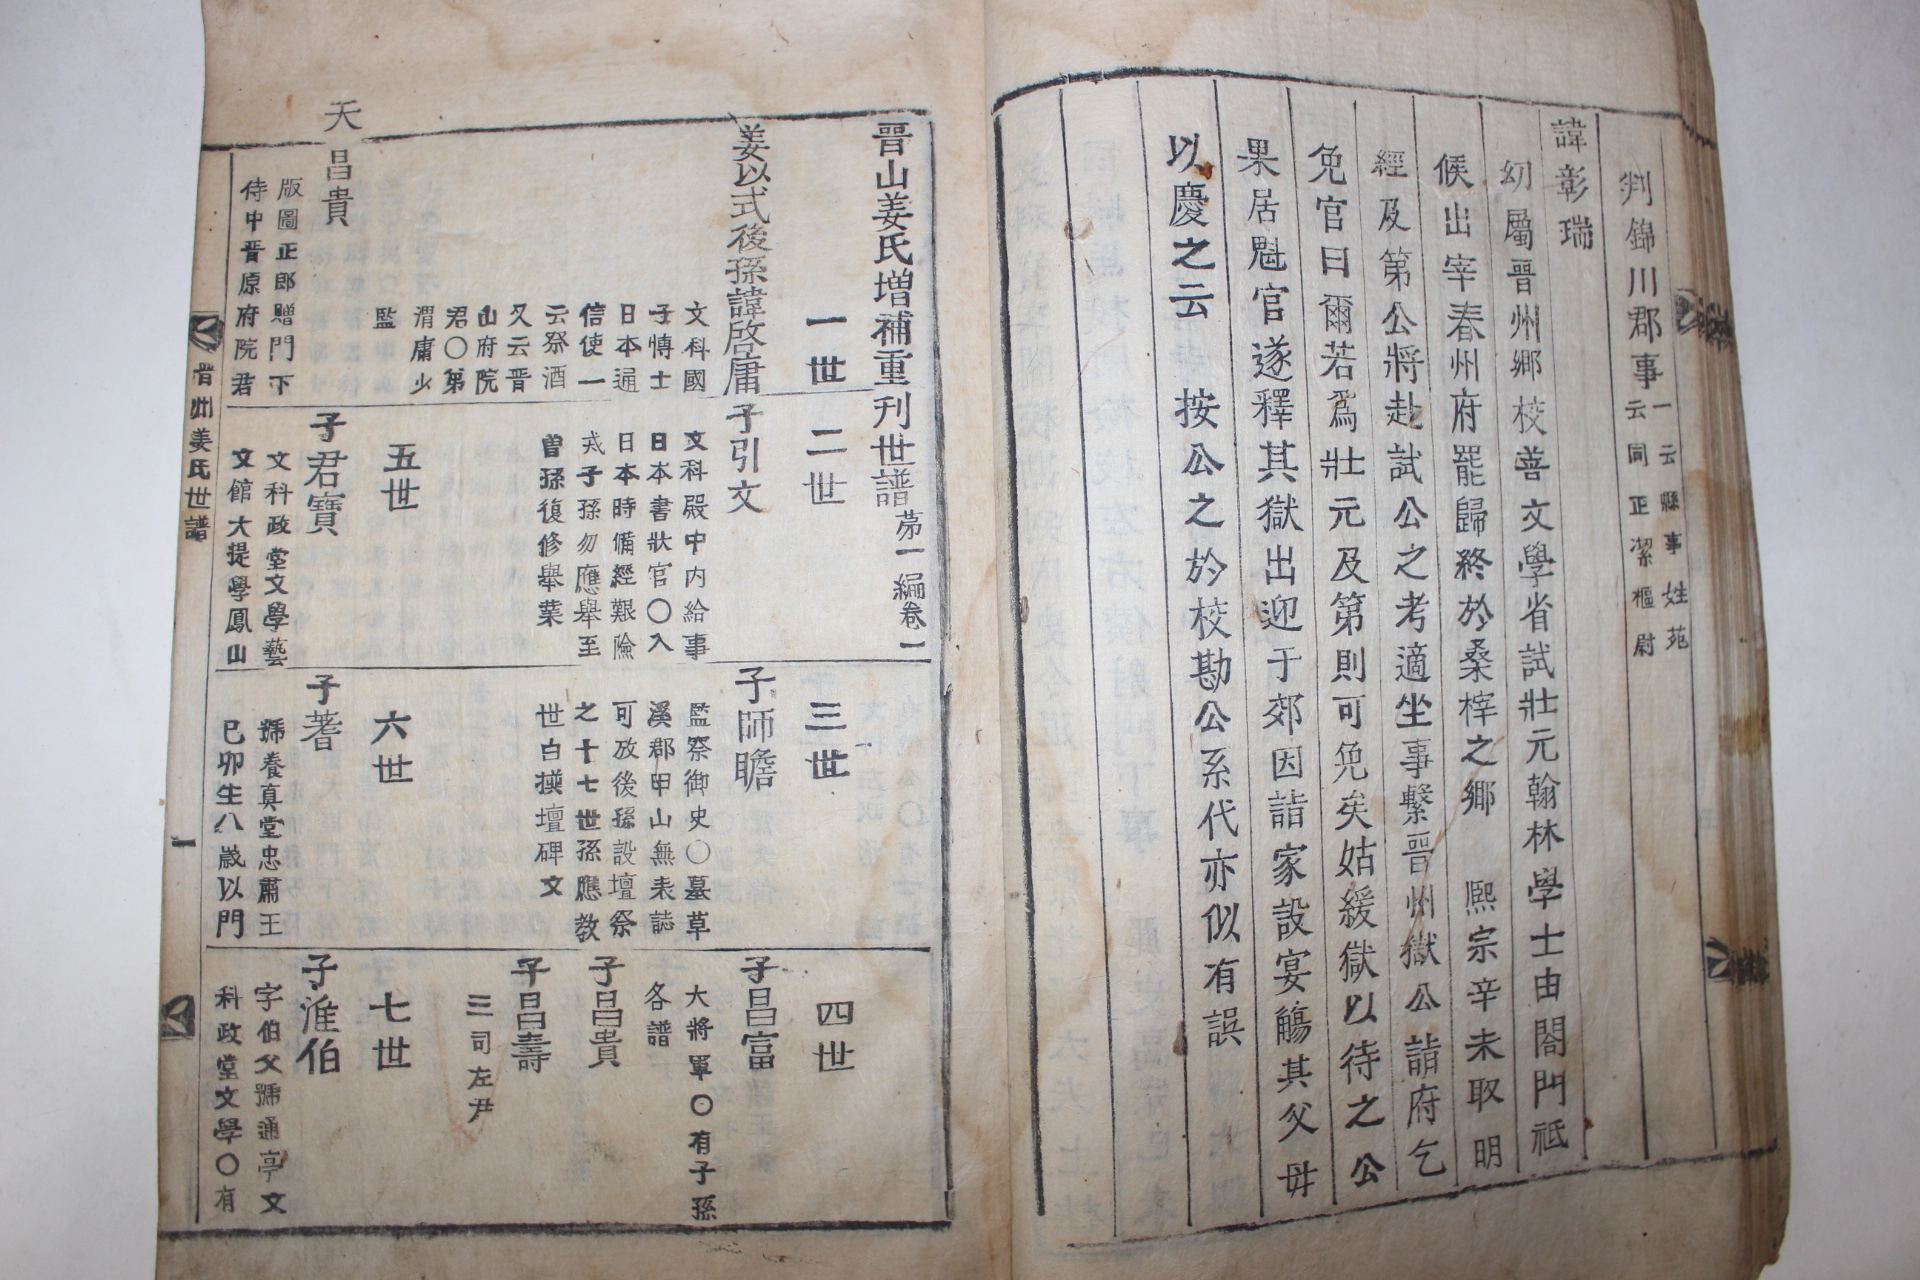 判錦川郡事一云縣事姓苑
云同正潔樞尉
諱彰瑞
幼屬晋州鄉校善文學省試壯元翰林學士由閤門祗
候出宰春州府罷歸終於桑梓之鄉 熙宗辛未取明
經及第公將赴試公之考適坐事繫晋州獄公詣府乞
免官曰爾若爲壯元及第則可免矣姑緩獄以待之公
果居魁官遂釋其獄出迎于郊因詣家設宴觴其父母
以慶之云 按公之於校勘公系代亦似有誤
晋山姜氏增補重刊世譜第一編卷一
一世
姜以式後孫諱啓庸
文科國
子愽士
日本通
信使一
云祭酒
又云晋
山府院
君〇第
渭庸少
監
二世
子引文
文科殿中内給事
日本書狀官〇入
日本時備經艱險
戒子孫勿應舉至
曾孫復修舉業
三世
子師瞻
監察御史〇墓草
溪郡甲山無表誌
可攷後孫設壇祭
之十七世孫應教
世白撰壇碑文
四世
子昌富
大將軍〇有子孫
各譜
子昌貴
子昌壽
三司左尹
天
昌貴
版圖正郎贈門下
侍中晋原府院君
五世
子君寶
文科政堂文學藝
文館大提學鳳山
六世
子蓍
號養眞堂忠肅王
己卯生八歲以門
七世
子淮伯
字伯父號通亭文
科政堂文學〇有
晋州姜氏世譜
一